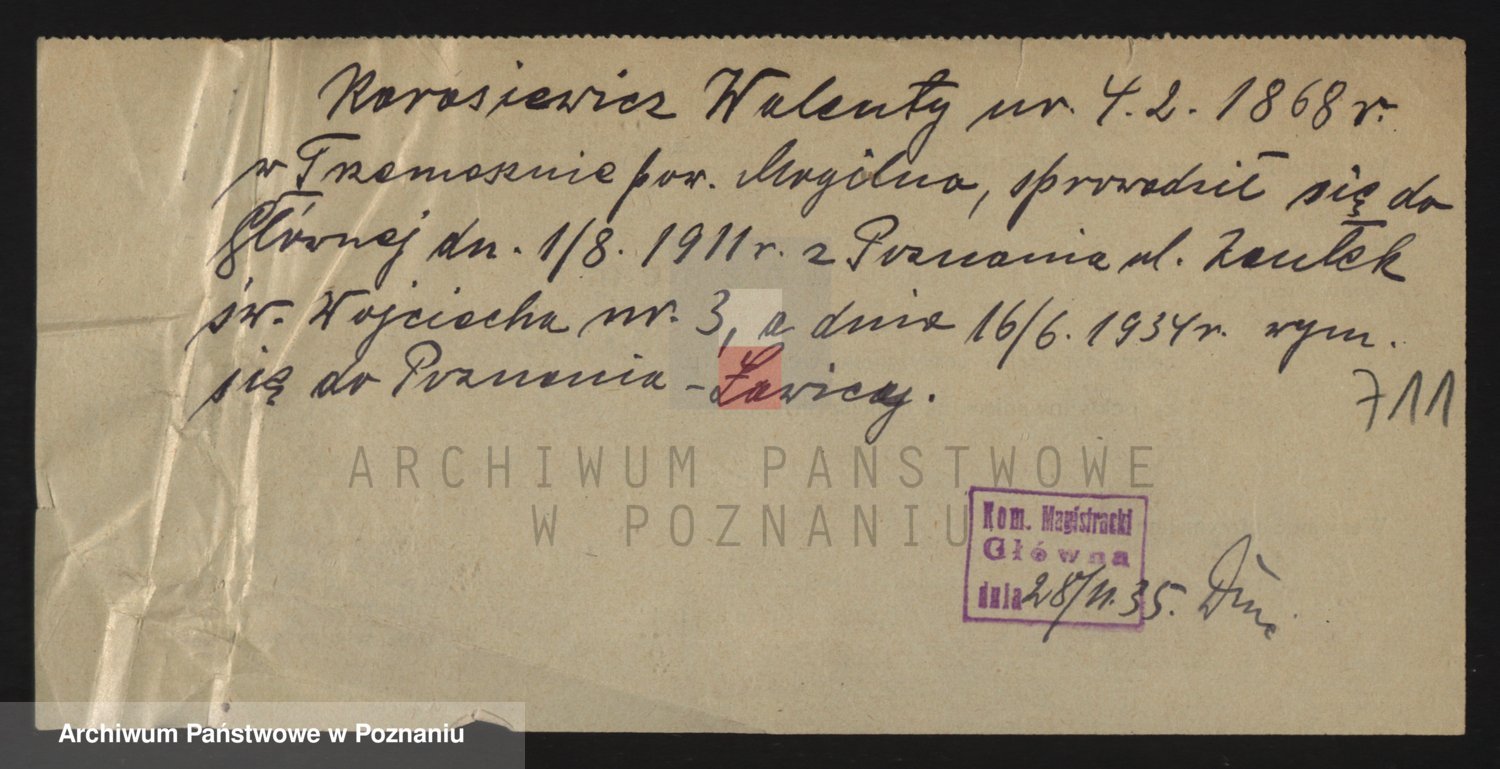 Karasiewicz Walenty ur. 4.2.1868 r.
w Trzemesznie pow. Mogilna, sprowadził się do
Głównej dn. 1/8. 1911 r. z Poznania ul. Zaułek
św. Wojciecha nr. 3, a dnia 16/6. 1934 r. wym.
się do Poznania - Ławicy.
711
ARCHIWUM PAŃSTWOWE
W POZNANIU
Kom. Magistracki
Główna
dnia 28/11.35.
Archiwum Państwowe w Poznaniu